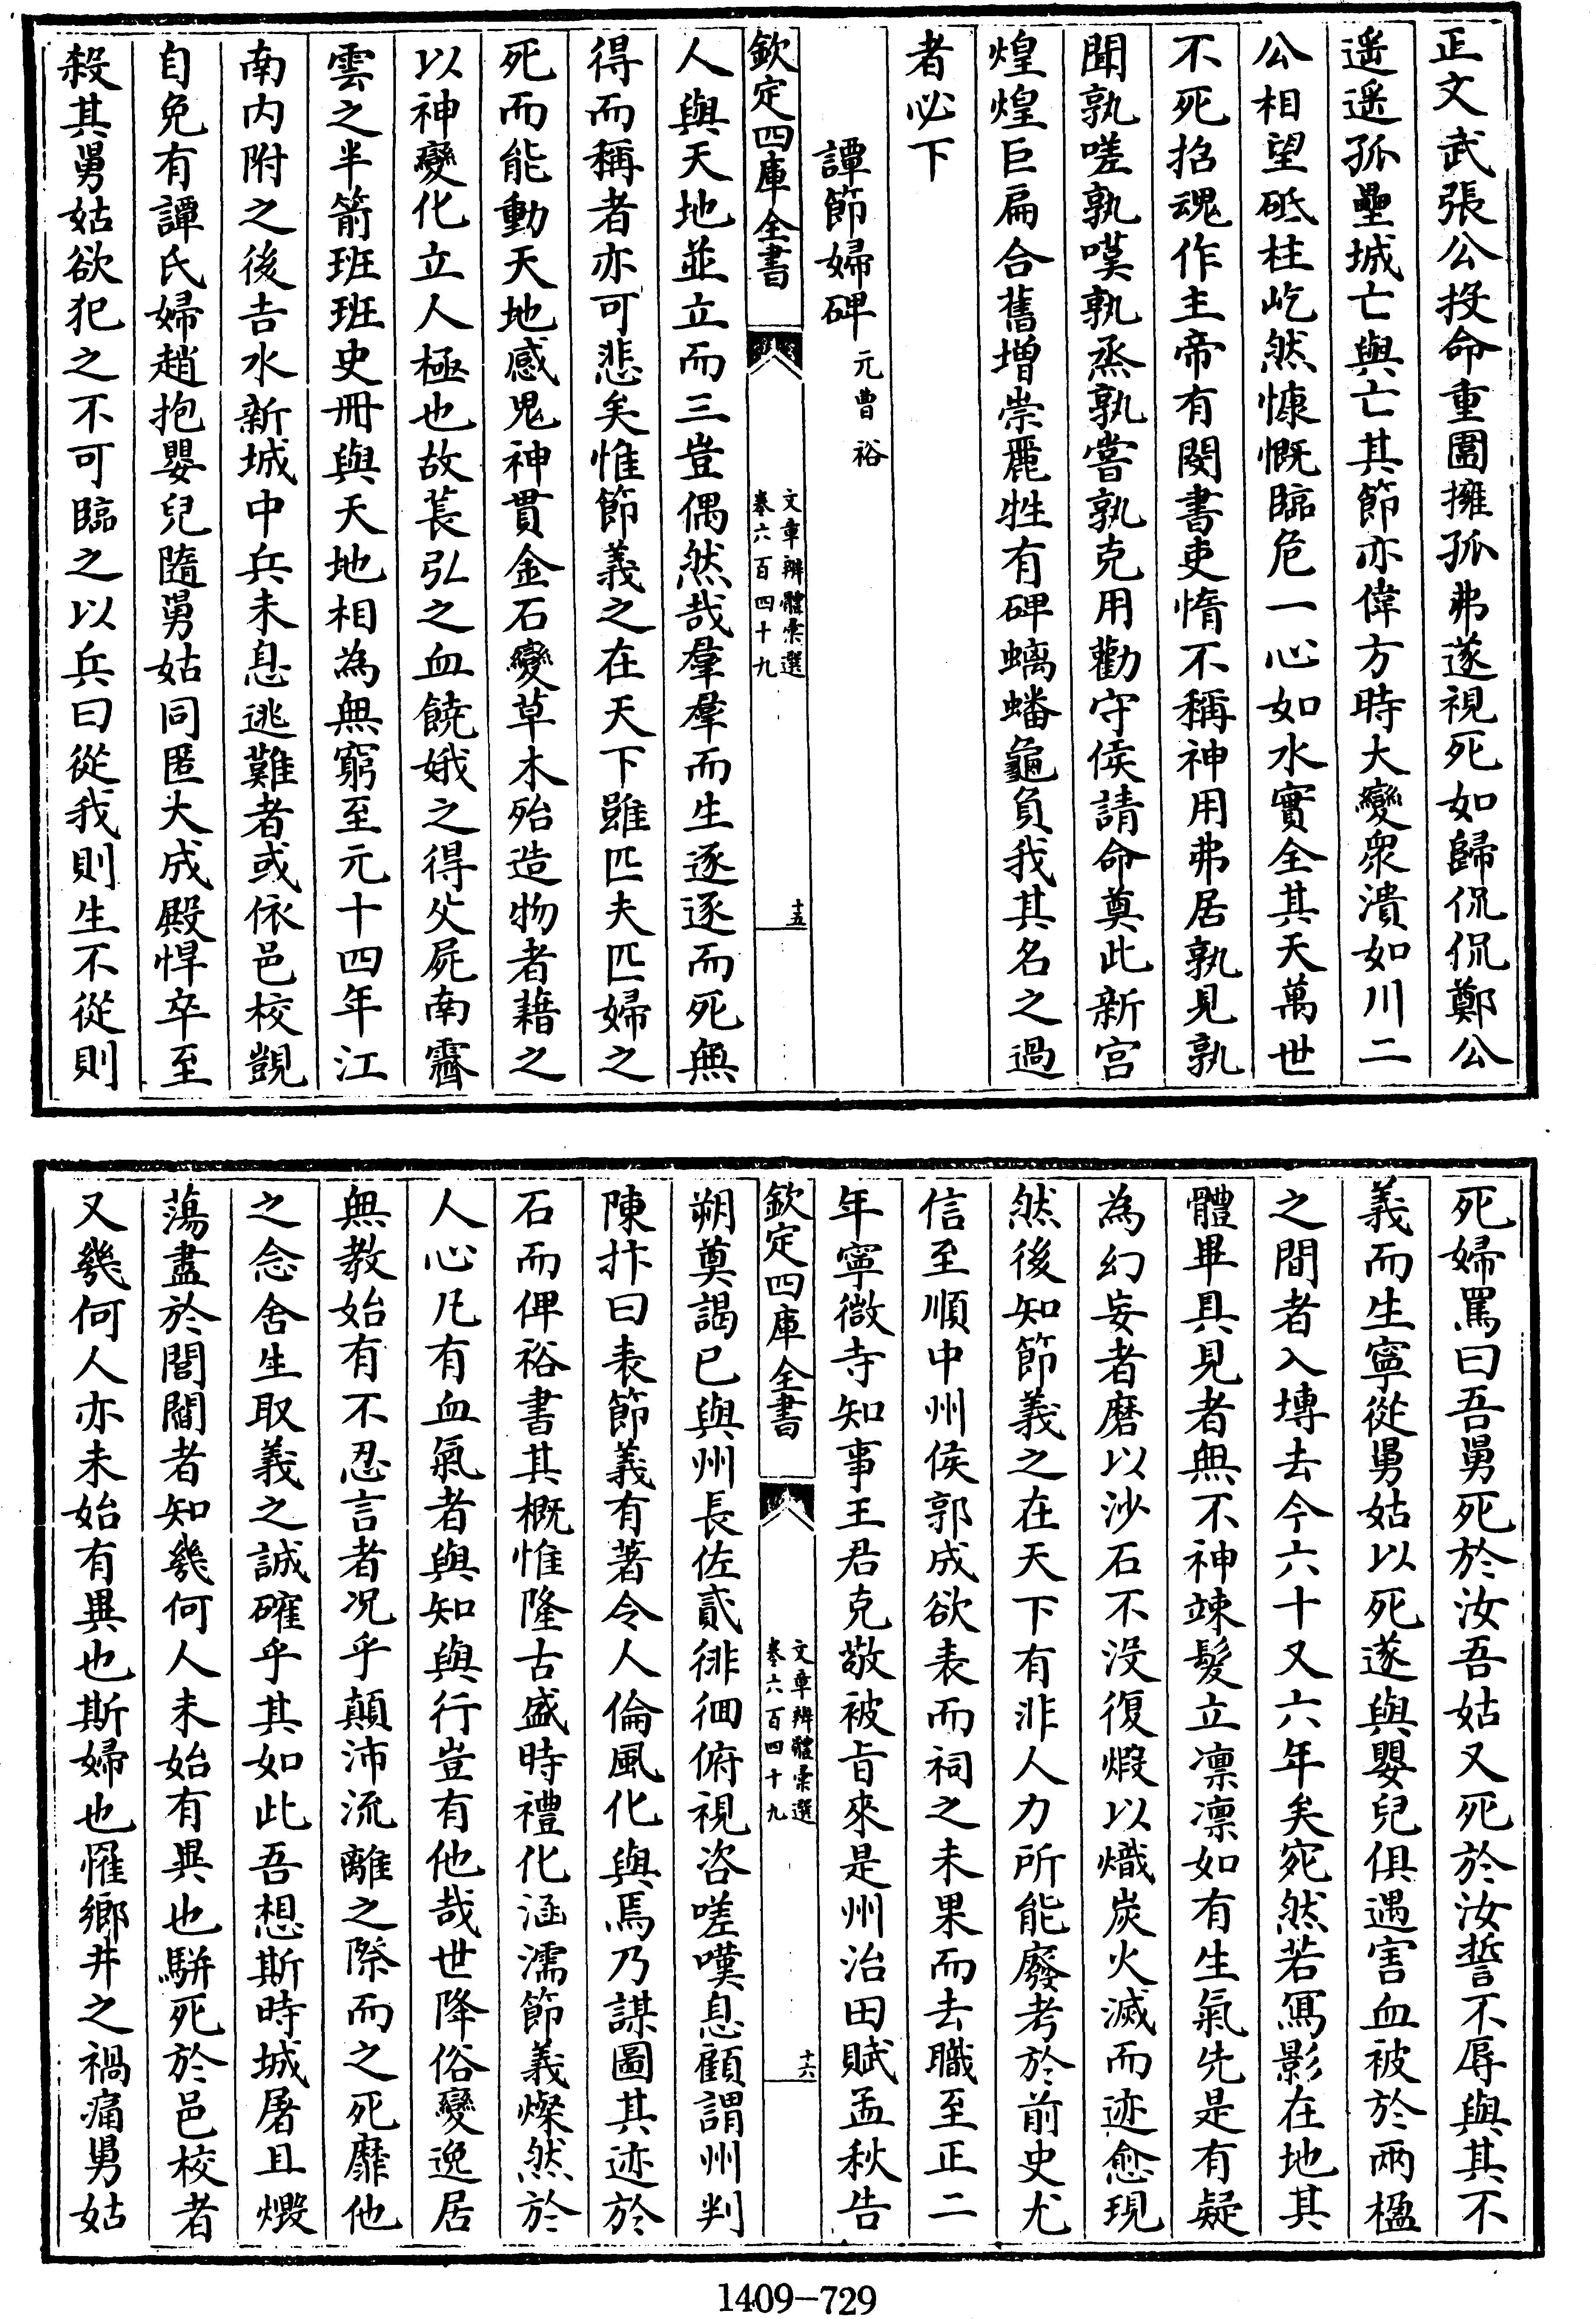 正文武張公投命重圍擁孤弗遂視死如歸侃侃鄭公
遥遥孤壘城亡與亡其節亦偉方時大變衆潰如川二
公相望砥柱屹然慷慨臨危一心如水實全其天萬世
不死招魂作主帝有閔書吏惰不稱神用弗居孰見孰
聞孰嗟孰嘆孰烝孰嘗孰克用勸守侯請命奠此新宫
煌煌巨扁合舊增崇麗牲有碑螭蟠龜負我其名之過
者必下
譚節婦碑 元曹裕
欽定四庫全書
文章辨體彙選
卷六百四十九
十五
人與天地並立而三豈偶然哉羣羣而生逐逐而死無
得而稱者亦可悲矣惟節義之在天下雖匹夫匹婦之
死而能動天地感鬼神貫金石變草木殆造物者藉之
以神變化立人極也故萇弘之血饒娥之得父屍南霽
雲之半箭班班史冊與天地相為無窮至元十四年江
南内附之後吉水新城中兵未息逃難者或依邑校覬
自免有譚氏婦趙抱嬰兒隨舅姑同匿大成殿悍卒至
殺其舅姑欲犯之不可臨之以兵曰從我則生不從則
死婦罵曰吾舅死於汝吾姑又死於汝誓不辱與其不
義而生寧從舅姑以死遂與嬰兒俱遇害血被於兩楹
之間者入塼去今六十又六年矣宛然若寫影在地其
體畢具見者無不神竦髮立凛凛如有生氣先是有疑
為幻妄者磨以沙石不没復煆以熾炭火滅而迹愈現
然後知節義之在天下有非人力所能廢考於前史尤
信至順中州侯郭成欲表而祠之未果而去職至正二
年寧徽寺知事王君克敬被旨來是州治田賦孟秋告
欽定四庫全書
文章辨體彙選
卷六百四十九
十六
朔奠謁已與州長佐貳徘徊俯視咨嗟嘆息顧謂州判
陳抃曰表節義有著令人倫風化與焉乃謀圖其迹於
石而俾裕書其概惟隆古盛時禮化涵濡節義燦然於
人心凡有血氣者與知與行豈有他哉世降俗變逸居
無教始有不忍言者况乎顛沛流離之際而之死靡他
之念舍生取義之誠確乎其如此吾想斯時城屠且燬
蕩盡於閭閻者知幾何人未始有異也駢死於邑校者
又幾何人亦未始有異也斯婦也罹鄉井之禍痛舅姑
1409-729